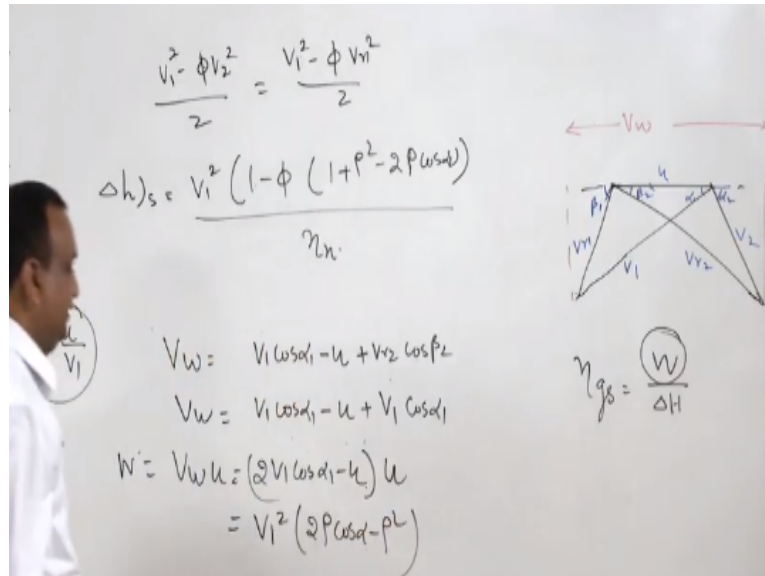 V₁² - ϕV₂² / 2 = V₁² - ϕ Vr₁² / 2
Δh)s = V₁² (1-ϕ (1+ρ²-2ρcosα)) / ηn.
u / V₁
Vw = V₁cosα₁ - u + Vr₂ cosβ₂
Vw = V₁cosα₁ - u + V₁ cosα₁
W = Vw u = (2V₁cosα₁ - u) u
= V₁² (2ρcosα - ρ²)
Vw
u
β₁ β₂ α₁ α₂
Vr₁ V₁ Vr₂ V₂
ηgs = W / ΔH